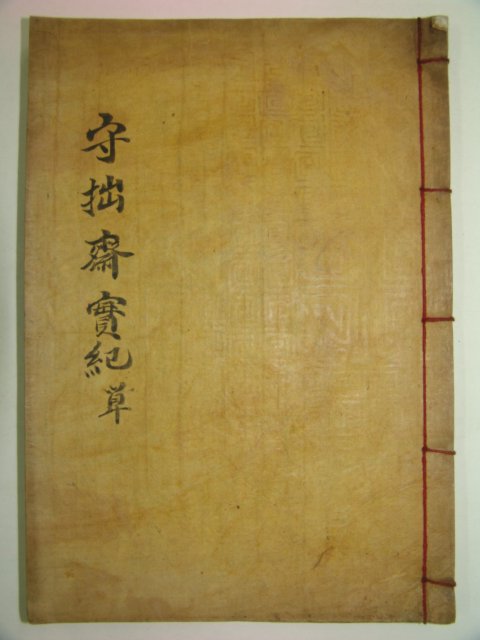 守拙齋實紀草